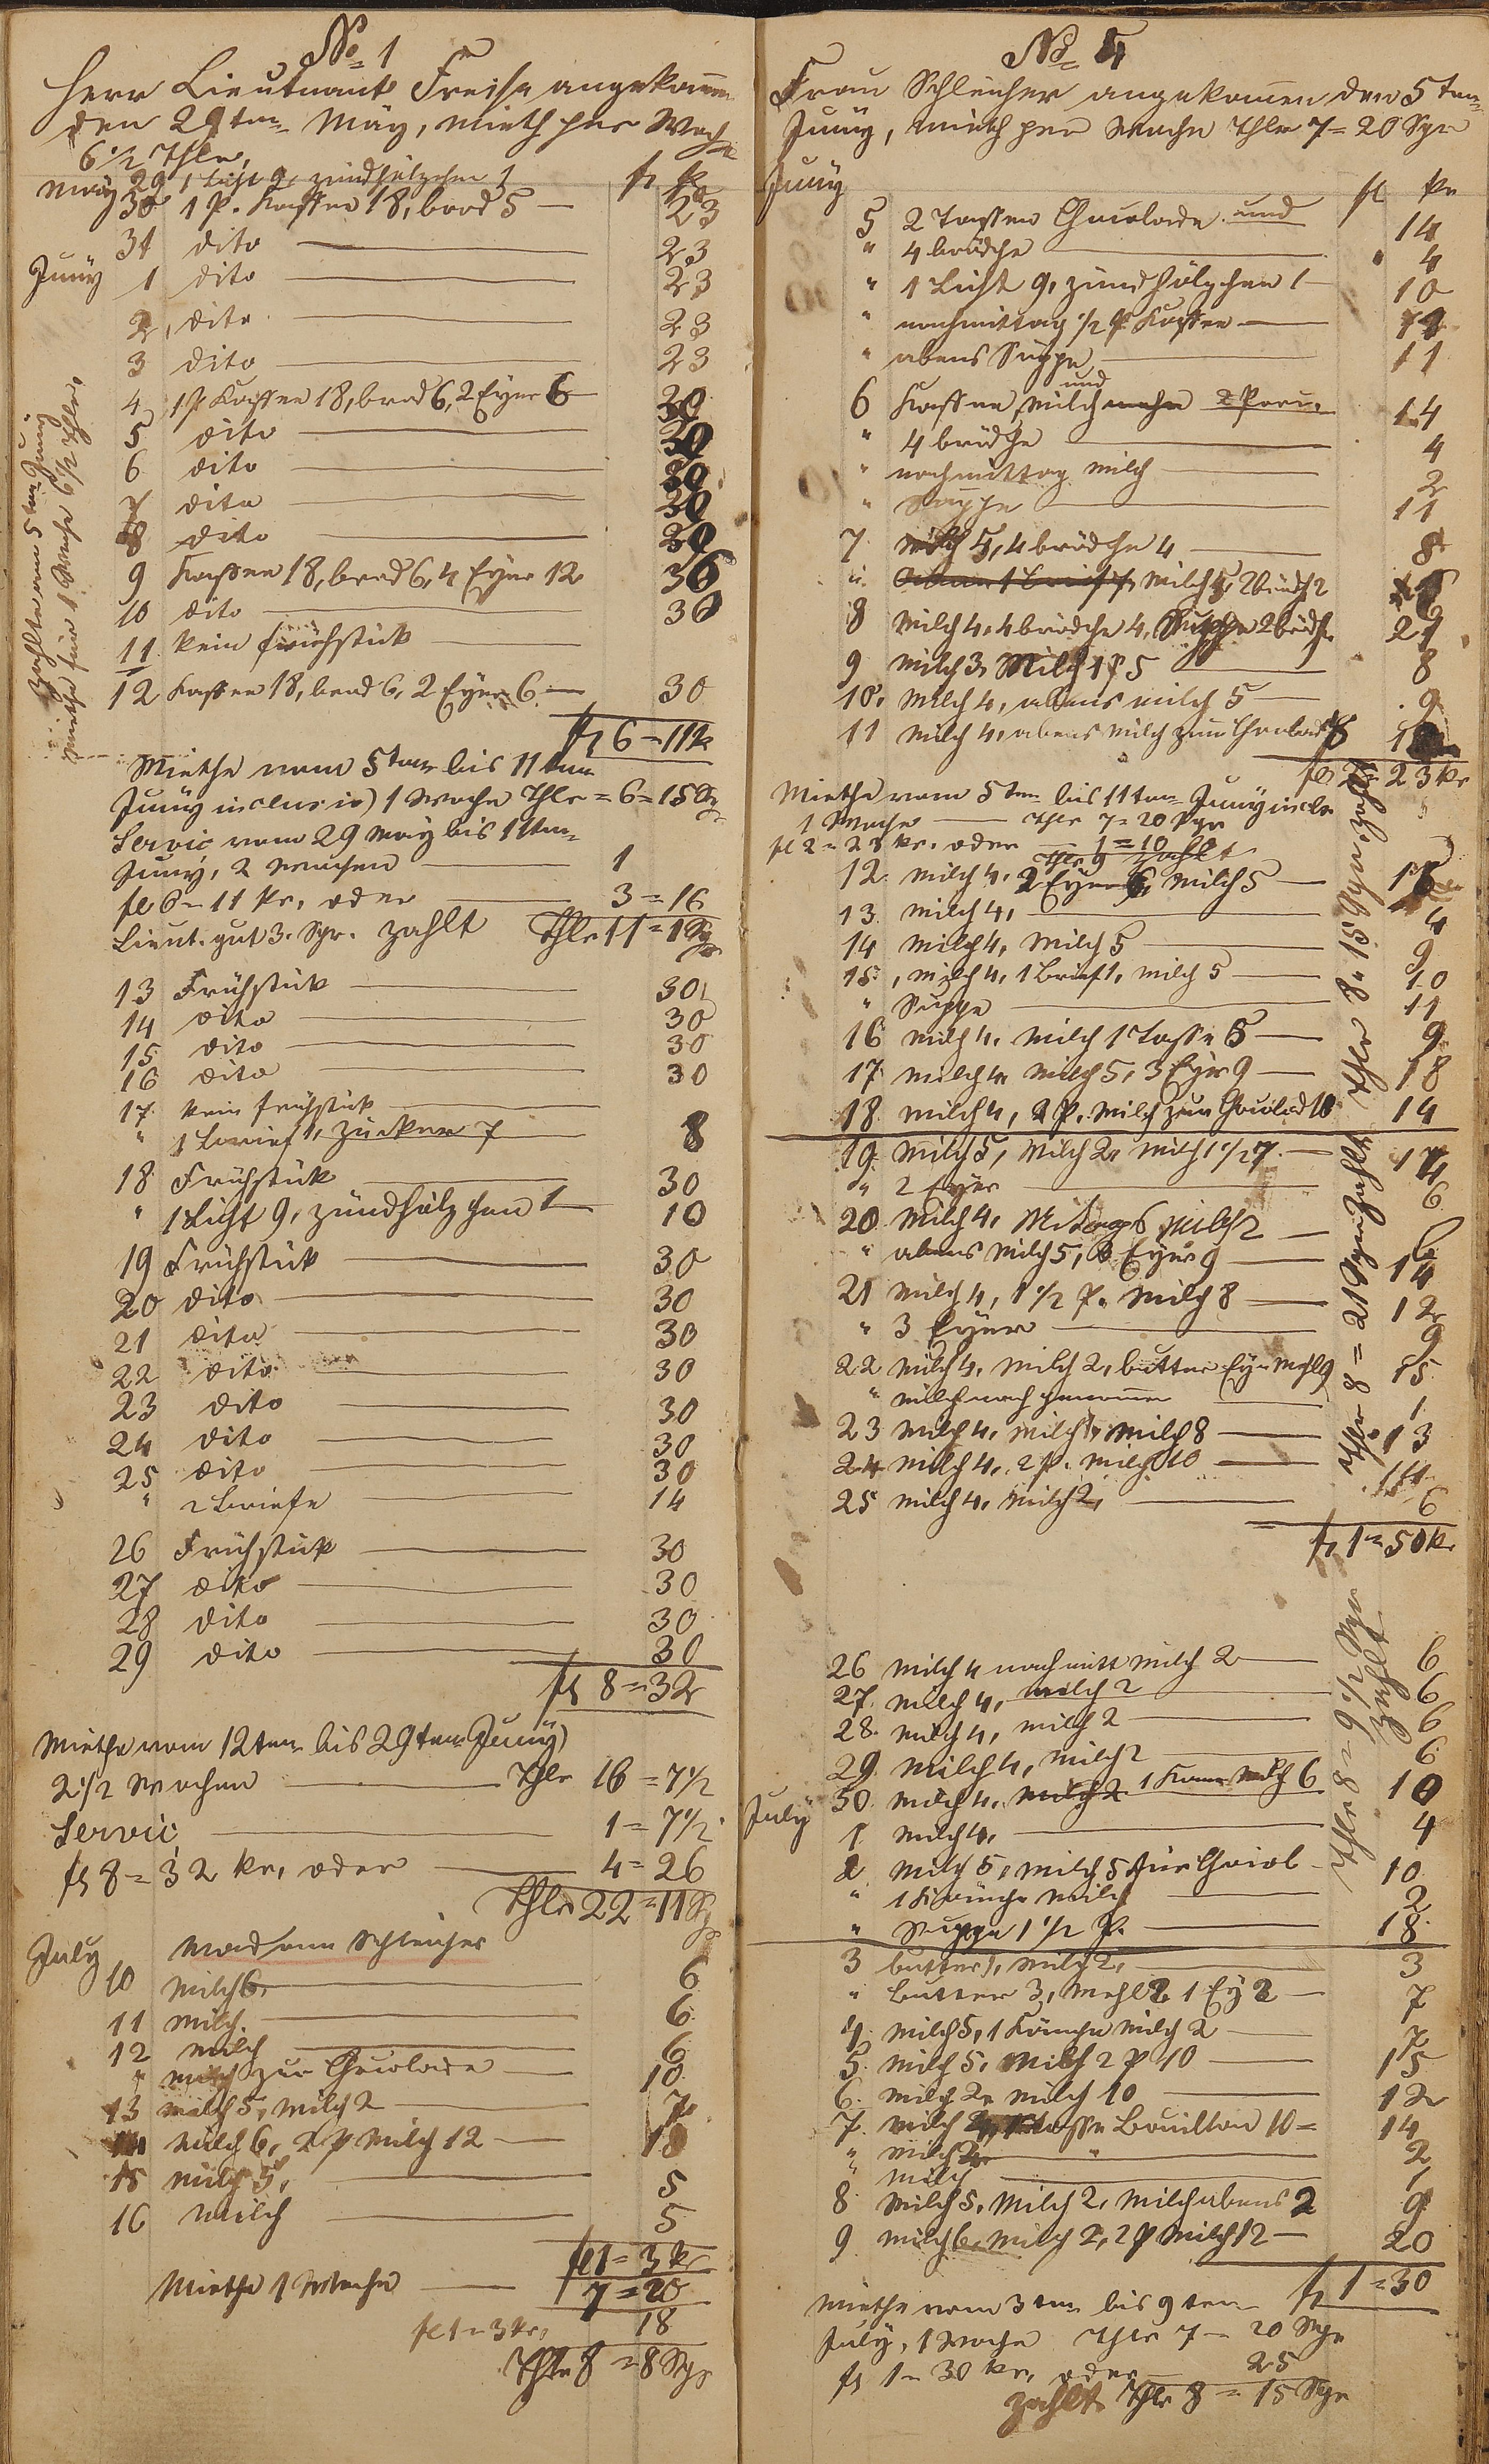 No 1
Herr Lieutnant Freise angekommen
den 29ten May, mieth per Woche
6 1/2 Thlr,
May 29 1 Licht 9, zündhölzchen 1
fl kr
30 1 P. Kaffee 18, brod 5 — 23
31 dito — 23
Juny 1 dito — 23
2 dito — 23
3 dito — 23
4 1 P Kaffee 18, brod 6, 2 Eyer 6 30
5 dito — 30
6 dito — 30
7 dito — 30
8 dito — 30
9 Kaffee 18, brod 6, 4 Eyer 12 36
10 dito — 36
11 kein frühstück —
12 Kaffee 18, brod 6, 2 Eyer 6 — 30
fl 6 = 11 kr
Zahlte am 5ten Juny
miethe für 1 Woche 6 1/2 Thlr.
Miethe vom 5ten bis 11ten
Juny inclusiv) 1 Woche Thlr = 6 = 15 Sgr
Servic vom 29 May bis 11ten
Juny, 2 wochen — 1
fl 6 = 11 kr, oder — 3 = 16
Lieut. gut 3. Sgr. zahlt Thlr 11 = 1 Sgr
13 Frühstück — 30
14 dito — 30
15 dito — 30
16 dito — 30
17 kein frühstück —
" 1 brief 1, zucker 7 8
18 Frühstück — 30
" 1 Licht 9, zündhölzchen 1 10
19 Frühstück — 30
20 dito — 30
21 dito — 30
22 dito — 30
23 dito — 30
24 dito — 30
25 dito — 30
" 2 briefe — 14
26 Frühstück — 30
27 dito — 30
28 dito — 30
29 dito — 30
fl 8 = 32
Miethe vom 12ten bis 29ten Juny)
2 1/2 Wochen — Thlr 16 = 7 1/2
Servic — 1 = 7 1/2
fl 8 = 32 kr, oder — 4 = 26
Thlr 22 = 11 Sgr
July Madame Schleicher
10 Milch 6, — 6
11 milch. — 6
12 milch — 6
" milch zur Chocolade — 10
13 milch 5, milch 2 — 7
14 milch 6, 2 P milch 12 — 18
15 milch 5, — 5
16 milch — 5
fl 1 = 3 kr
Miethe 1 Woche — 7 = 20
fl 1 = 3 kr, 18
Thlr 8 = 8 Sgr
No 4
Frau Schleicher angekommen den 5ten
Juny, mieth per woche Thlr 7 = 20 Sgr
Juny fl kr
5 2 Tassen Chocolade und 14
" 4 brödche — 4
" 1 Licht 9, zündhölzchen 1 10
" nachmittag 1/2 P Kaffee —
" abens Suppe — 11
6 Kaffee und milch 14
" 4 brödche — 4
" nachmittag milch — 2
" Suppe — 11
7 milch 4, 4 brödche 4 — 8
" milch 4, 2 brödch 2
8 milch 4, 4 brödche 4, Suppe 2 brödch 21
9 milch 3, Milch 1 P 5 — 8
10, milch 4, abens milch 5 — 9
11 milch 4, abens milch zum Chocolad 8
23 kr
Miethe vom 5ten bis 11ten Juny incle
1 Woche — Thlr 7 = 20 Sgr
fl 2 = 23 kr, oder — 1 = 10
Thlr 9 zahlt
12 milch 4, 2 Eyer 6, milch 5 — 15
13 milch 4, — 4
14 milch 4, milch 5 — 9
15, milch 4, 1 brief 1, milch 5 — 10
" Suppe — 11
16 milch 4, milch 1 Tasse 5 — 9
17 milch 4 milch 5, 3 Eyer 9 — 18
18 milch 4, 2 P. milch zur Chocolad 10 14
Thlr 8 = 15 Sgr, zahlt
19 milch 5, milch 2, milch 1 1/2 7 — 14
" 2 Eyer — 6
20 milch 4, Mitags milch 2 — 6
" abens milch 5, 3 Eyer 9 — 14
21 milch 4, 1 1/2 P. milch 8 — 12
" 3 Eyer — 9
22 milch 4, milch 2, butter Ey mehl 9 15
" milch nach genomen — 1
23 milch 4, milch 1, milch 8 — 13
24 milch 4, 2 P. milch 10 — 14
25 milch 4, milch 2, — 6
fl 1 = 50 kr
Thlr 8 = 21 Sgr zahlt
26 milch 4 nachmitt milch 2 — 6
27 milch 4, milch 2 — 6
28 milch 4, milch 2 — 6
29 milch 4, milch 2 — 6
30 milch 4, milch 2 1 Kane milch 6 10
July 1 milch 4, — 4
2 milch 5, milch 5 zur Chocol — 10
" 1 Känche milch — 2
" Suppe 1 1/2 P. — 18
Thlr 8 = 9 1/2 Sgr zahlt
3 butter 1, milch 2, — 3
" butter 3, mehl 2 1 Ey 2 — 7
4 milch 5, 1 Känche milch 2 — 7
5 milch 5, Milch 2 P 10 — 15
6 milch 2, milch 10 — 12
7 milch 4, 1 Tasse Bouillon 10 = 14
" milch 2 — 2
" milch — 1
8 milch 5, Milch 2, milch abens 2 9
9 milch 6, milch 2, 2 P milch 12 — 20
fl 1 = 30
Miethe vom 3ten bis 9ten
July, 1 Woche Thlr 7 = 20 Sgr
fl 1 = 30 kr, oder — 25
zahlt Thlr 8 = 15 Sgr